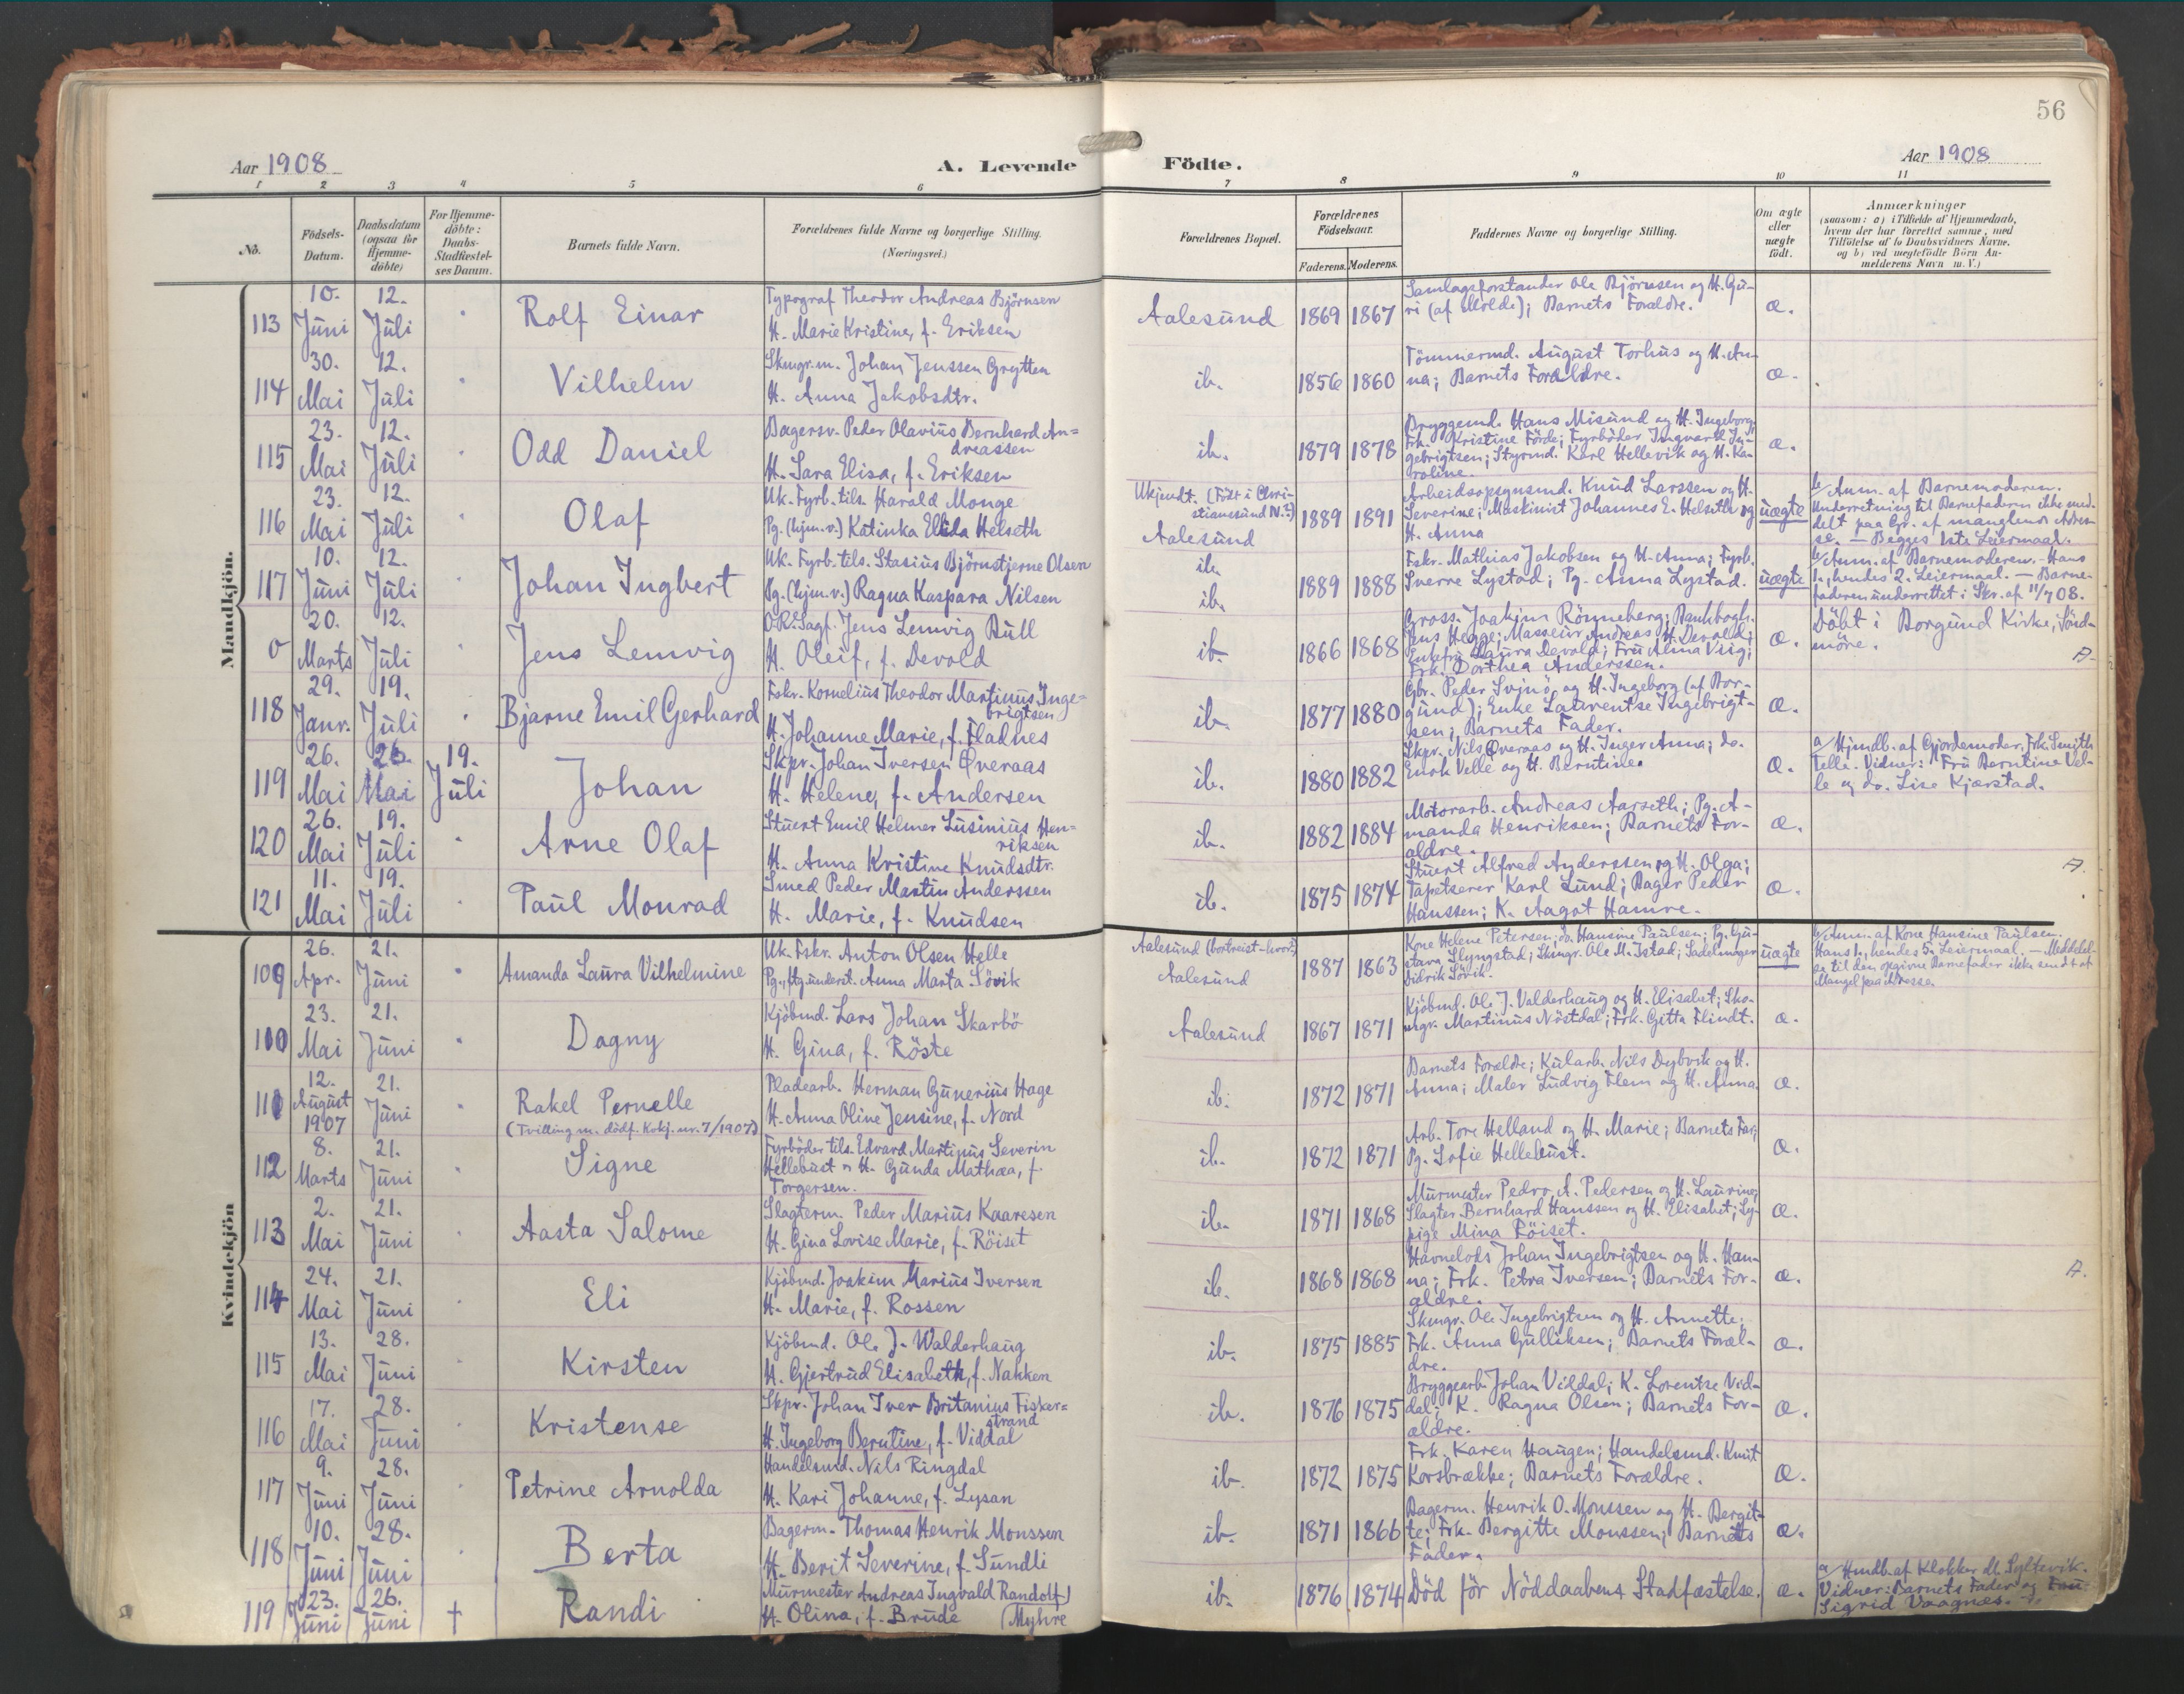 56
Aar 1908
A. Levende
Födte.
Aar 1908
1 2 3 4 5 6 7 8 9 10 11
No.
Födsels-Datum.
Daabsdatum (ogsaa for Hjemme-döbte)
For Hjemme-döbte: Daabs-Stadfæstel-ses Datum.
Barnets fulde Navn.
Forældrenes fulde Navne og borgerlige Stilling.
(Næringsvei.)
Forældrenes Bopæl.
Forældrenes Födselsaar.
Faderens. Moderens.
Faddernes Navne og borgerlige Stilling.
Om ægte eller uægte födt.
Anmærkninger
(saasom: a) i Tilfælde af Hjemmedaab,
hvem der har forrettet samme, med
Tilföielse af to Daabsvidners Navne.
og b) ved uægtefödte Börn An-
melderens Navn m. V.)
Mandkjön.
113 10. Juni 12. Juli Rolf Einar
Typograf Theodor Andreas Björnsen
H. Marie Kristine, f. Eriksen
Aalesund 1869 1867
Samlagsforstander Ole Bjørnsen og H. Gu-
ri (af Molde); Barnets Forældre.
æ.
114 30. Mai 12. Juli Vilhelm
Skmgr.m. Johan Jenssen Grytten
H. Anna Jakobsdtr.
ib. 1856 1860
Tömmermd. August Torhus og H. An-
na; Barnets Forældre.
æ.
115 23. Mai 12. Juli Odd Daniel
Bagersv. Peder Olavius Bernhard An=
dreassen
H. Sara Elisa, f. Eriksen
ib. 1879 1878
Bryggemd. Hans Misund og H. Ingeborg;
Frk. Kristine Förde; Fyrböder Ingvart In-
gebrigtsen; Styrmd. Karl Hellevik og H. Ka-
roline.
æ.
116 23. Mai 12. Juli Olaf
Uk. Fyrb. tils. Harald Monge
Pg. (hjm.v.) Katinka Elida Helseth
Ukjendt. (Født i Chri-
stianssund N.?)
Aalesund
1889 1891
Arbeidsopsynsmd. Knud Larssen og H.
Severine; Maskinist Johannes E. Helseth og
H. Anna
uægte
b/ Anm. af Barnemoderen.
Underretning til Barnefaderen ikke med-
delt paa Gr. af manglende Adres-
se. — Begges 1ste Leiermaal.
117 10. Juni 12. Juli Johan Ingbert
Uk. Fyrb. tils. Stasius Björnstjerne Olsen
Pg. (hjm.v.) Ragna Kaspara Nilsen
ib.
ib.
1889 1888
Fskr. Mathias Jakobsen og H. Anna; Fyrb.
Sverre Lystad; Pg. Anna Lystad.
uægte
b/ Anm. af Barnemoderen. - Hans
1., hendes 2. Leiermaal. — Barne-
faderen underrettet i Skr. af 11/7 08.
0 20. Marts 12. Juli Jens Lemvig
O.R.Sagf. Jens Lemvig Bull
H. Oleif, f. Devold
ib. 1866 1868
Gross. Joakim Rönneberg; Bankbogh.
Jens Hegge; Masseur Andreas H. Devold;
Enkefru Laura Devold; Fru Alma Vrig;
Frk. Dorthea Anderssen.
æ.
Döbt i Borgund Kirke, Sönd-
möre.
A.
118 29. Janr. 19. Juli Bjarne Emil Gerhard
Fskr. Kornelius Theodor Martinus Inge=
brigtsen
H. Johanne Marie, f. Fladnes
ib. 1877 1880
Gbr. Peder Svinö og H. Ingeborg (af Bor-
gund); Enke Laurentse Ingebrigt-
sen; Barnets Fader.
æ.
119 26. Mai 26. Mai 19. Juli Johan
Skpr. Johan Iversen Overaas
H. Helene, f. Andersen
ib. 1880 1882
Skpr. Nils Overaas og H. Inger Anna; do.
Enok Velle og H. Berntine.
æ.
a/ Hjmdb. af Gjordemoder, Frk. Smith
Telle. Vidner: Fru Berntine Vel-
le og do. Lise Kjærstad.
120 26. Mai 19. Juli Arne Olaf
Stuert Emil Helmer Lusinius Hen=
riksen
H. Anna Kristine Knudsdtr.
ib. 1882 1884
Motorarb. Andreas Aarseth; Pg. A-
manda Henriksen; Barnets For-
ældre.
æ.
121 11. Mai 19. Juli Paul Monrad
Smed Peder Martin Anderssen
H. Marie, f. Knudsen
ib. 1875 1874
Stuert Alfred Anderssen og H. Olga;
Tapetserer Karl Lund; Bager Peder
Hanssen; K. Aagot Hamre.
æ.
A.
Kvindekjön
109 26. Apr. 21. Juni Amanda Laura Vilhelmine
Uk. Fskr. Anton Olsen Helle
Pg., ftg.underst. Anna Marta Sövik
Aalesund (bortreist - hvor?)
Aalesund
1887 1863
Kone Helene Petersen; do. Hansine Paulsen; Pg. Gu-
stava Slyngstad; Skmgr. Ole M. Istad; Sadelmager
Didrik Sövik.
uægte
b/ Anm. af Kone Hansine Paulsen.
Hans 1., hendes 5. Leiermaal. — Meddelel-
se til den opgivne Barnefader ikke sendt af
Mangel paa Adresse.
110 23. Mai 21. Juni Dagny
Kjöbmd. Lars Johan Skarbö
H. Gina, f. Röste
Aalesund 1867 1871
Kjöbmd. Ole J. Valderhaug og H. Elisabet; Sko-
mgr. Martinus Nöstdal; Frk. Gitta Flindt.
æ.
111 12. August 1907 21. Juni Rakel Pernelle
(Tvilling m. dödf. Kvkj. nr. 7/1907)
Pladearb. Herman Gunerius Hage
H. Anna Oline Jensine, f. Nord
ib. 1872 1871
Barnets Forældre; Kularb. Nils Dybvik og H.
Anna; Maler Ludvig Flem og H. Anna.
æ.
112 8. Marts 21. Juni Signe
Fyrböder tils. Edvard Martinus Severin
Hellebust og H. Gunda Mathea, f.
Torgersen.
ib. 1872 1871
Arb. Tore Helland og H. Marie; Barnets Far;
Pg. Sofie Hellebust.
æ.
113 2. Mai 21. Juni Aasta Salome
Slagterm. Peder Marius Kaaresen
H. Gina Lovise Marie, f. Röiset
ib. 1871 1868
Murmester Pedro A. Pedersen og H. Laurine;
Slagter Bernhard Hanssen og H. Elisabet; Sy-
pige Mina Röiset.
æ.
114 24. Mai 21. Juni Eli
Kjöbmd. Joakim Marius Iversen
H. Marie, f. Rossen
ib. 1868 1868
Havnelods Johan Ingebrigtsen og H. Han-
na; Frk. Petra Iversen; Barnets For-
ældre.
æ.
A.
115 13. Mai 28. Juni Kirsten
Kjöbmd. Ole J. Walderhaug
H. Gjertrud Elisabeth, f. Nakken
ib. 1875 1885
Skmgr. Ole Ingebrigtsen og H. Annette;
Frk. Anna Gulliksen; Barnets Foræl-
dre.
æ.
116 17. Mai 28. Juni Kristense
Skpr. Johan Iver Britanius Fisker=
strand
H. Ingeborg Berntine, f. Viddal
ib. 1876 1875
Bryggearb. Johan Viddal; K. Lorentze Vid-
dal; K. Ragna Olsen; Barnets For-
ældre.
æ.
117 9. Juni 28. Juni Petrine Arnolda
Handelsmd. Nils Ringdal
H. Kari Johanne, f. Lysan
ib. 1872 1875
Frk. Karen Haugen; Handelsmd. Knut
Korsbrække; Barnets Forældre.
æ.
118 10. Juni 28. Juni Berta
Bagerm. Thomas Henrik Monssen
H. Berit Severine, f. Sundli
ib. 1871 1866
Bagerm. Henrik O. Monssen og H. Bergit-
te; Frk. Bergitte Monssen; Barnets
Fader.
æ.
119 23. Juni 26. Juni † Randi
Murmester Andreas Ingvald Randolf
H. Olina, f. Brude (Myhre
ib. 1876 1874
Död för Nöddaabens Stadfæstelse.
æ.
a/ Hmdb. af Klokker M. Syltevik.
Vidner: Barnets Fader og Fru
Sigrid Vaagnæs.